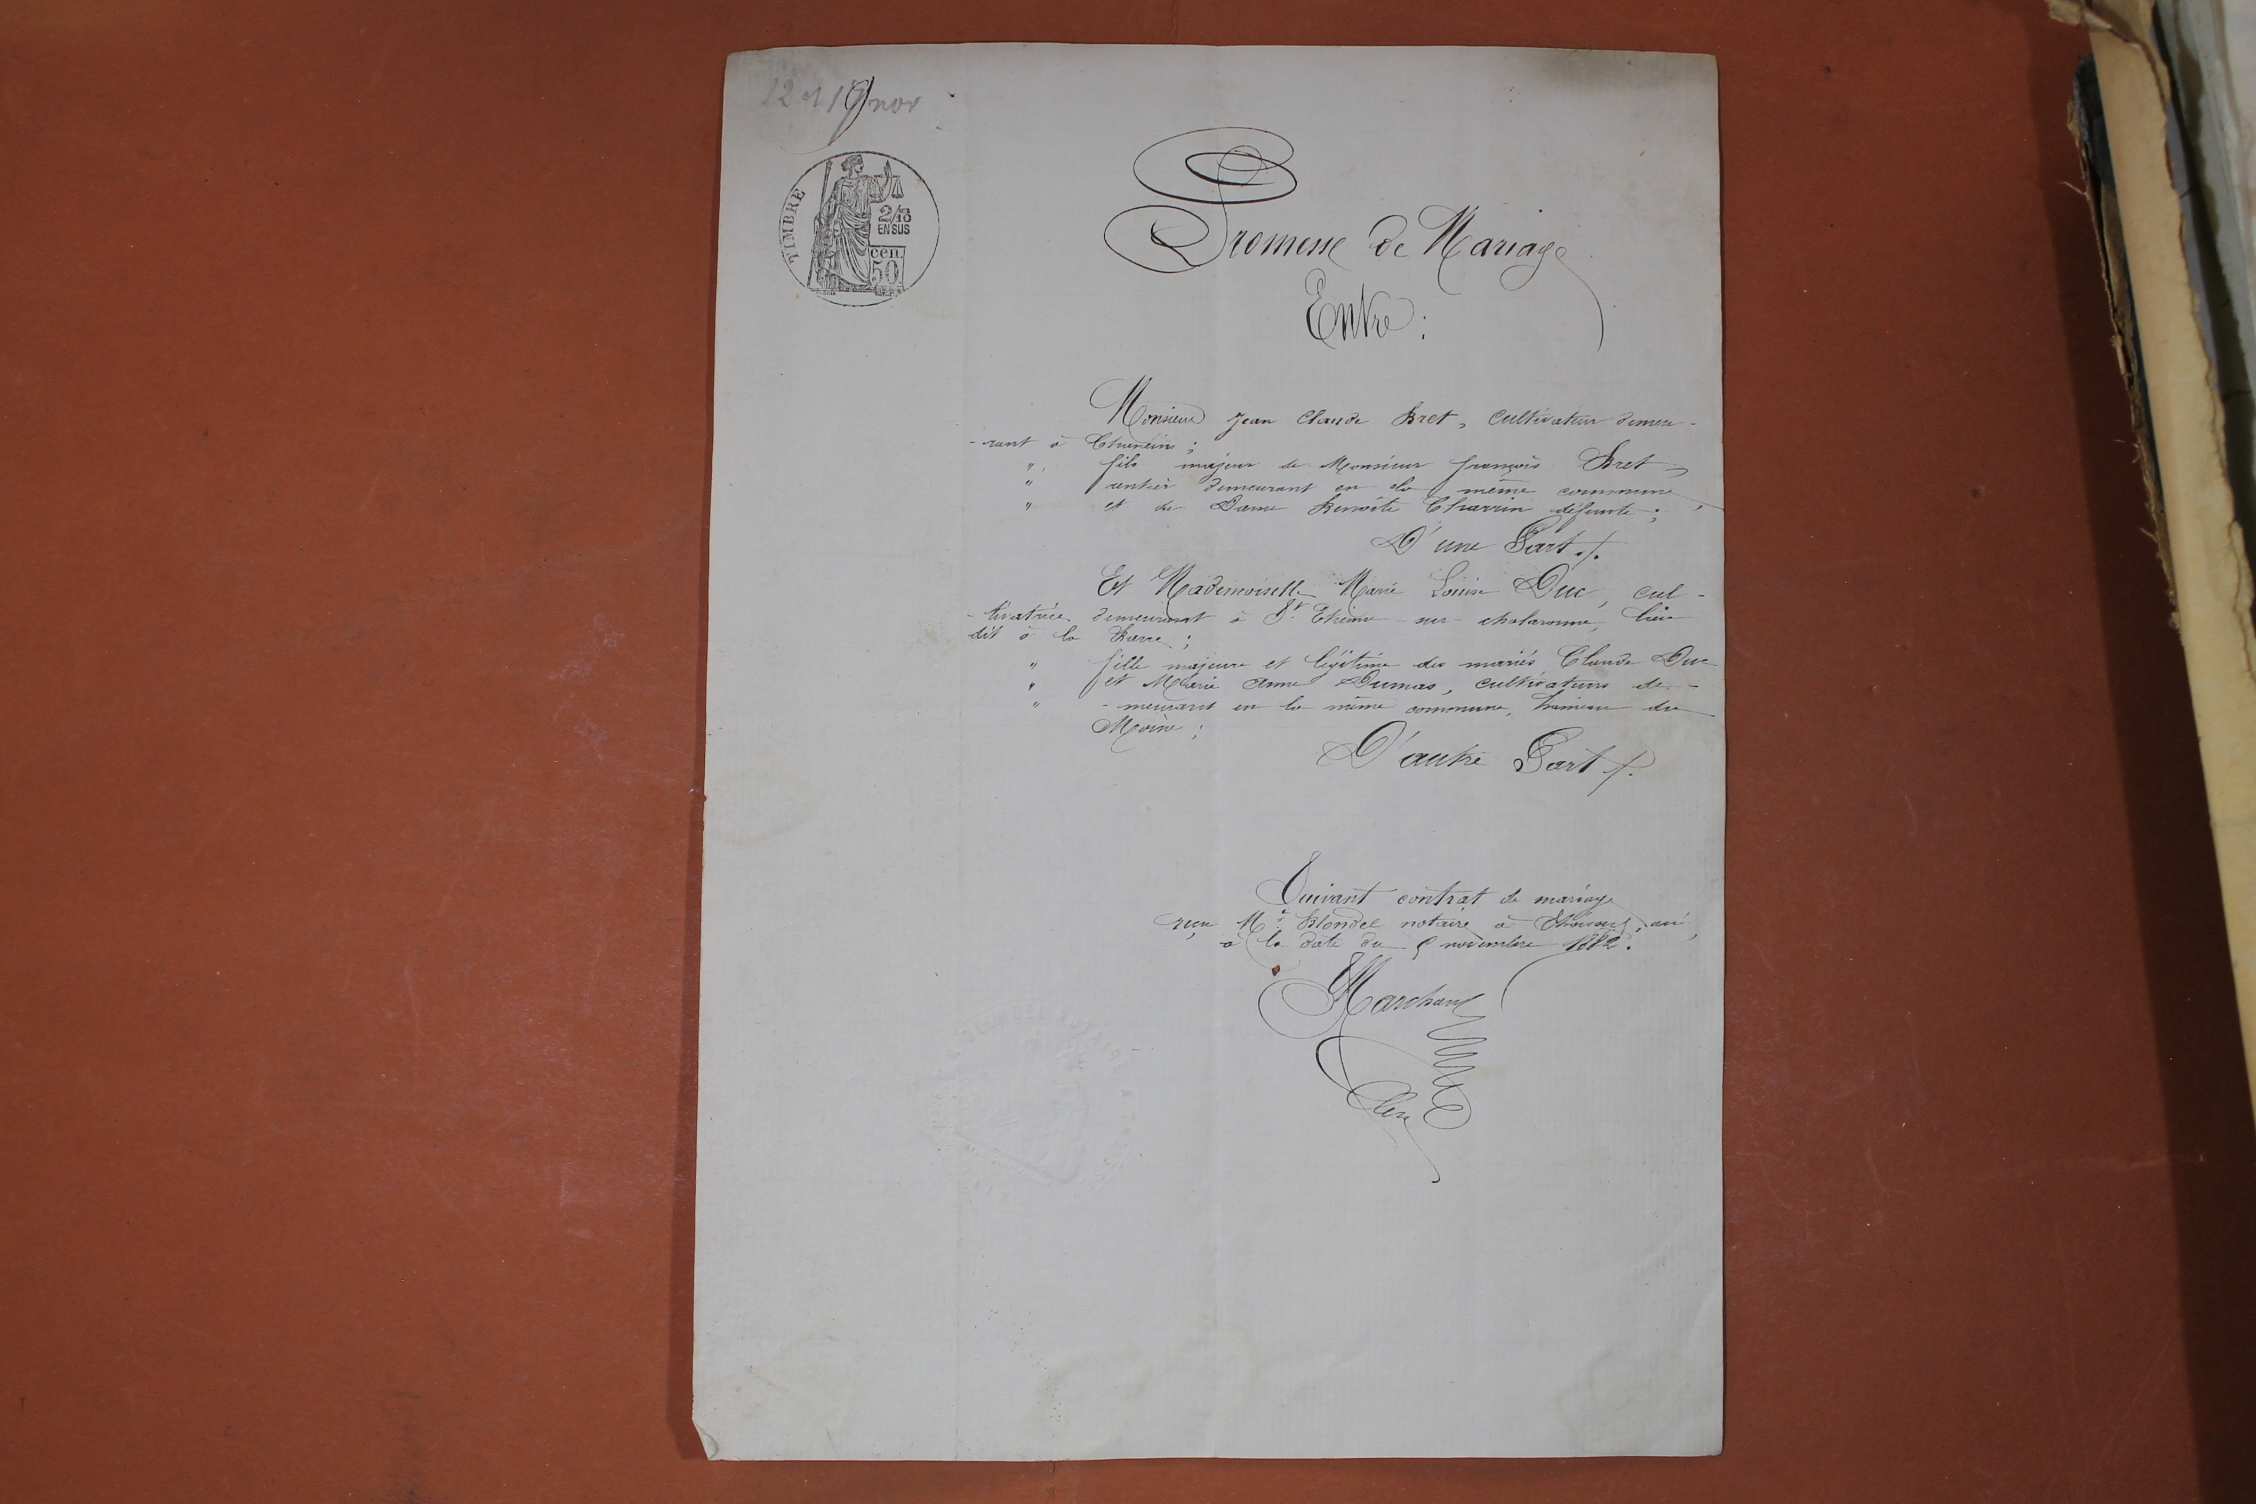 12 et 19 nov
TIMBRE
2/10
EN SUS
cen.
50
Promesse de Mariage
Entre :
Monsieur Jean Claude Bret, cultivateur demeu-
-rant à ;
" fils majeur de Monsieur françois Bret,
" rentier demeurant en la même commune,
" et de Dame Benoîte Charrin défunte ;
D'une Part ./.
Et Mademoiselle Marie Louise Duc, cul-
-tivatrice demeurant à St Etienne-sur-chalaronne, lieu
dit à la Barre ;
" fille majeure et légitime des mariés Claude Duc
" et Marie Anne Dumas, cultivateurs de-
" -meurant en la même commune, hameau du
Moine ;
D'autre Part ./.
Suivant contrat de mariage
reçu Me Blondel notaire à
à la date du novembre 1882.
Marchand
Clerc